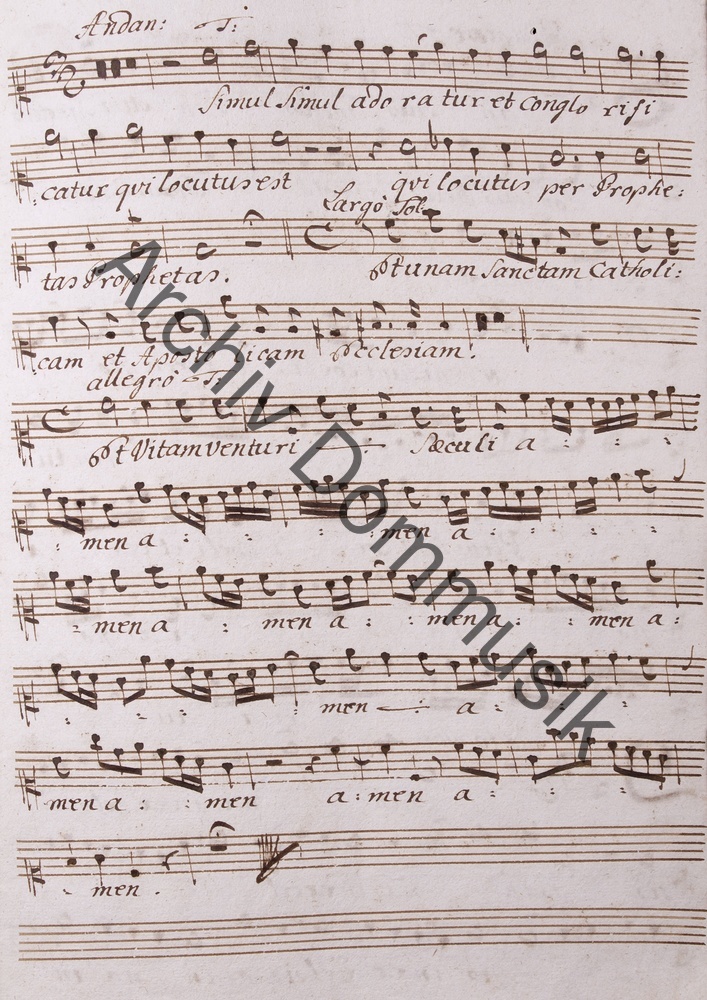 Andan: T:
Simul Simul ado ra tur et Conglo rifi
:catur qvi locutus est qvi locutus per Prophe:
Largo Sol:
tas Prophetas. Et unam Sanctam Catholi:
cam et Aposto licam Ecclesiam.
allegro T:
Et Vitam venturi Sæculi a : : :
: men a : : : : men a : : : :
: men a : men a : men a : men a :
: : : : men a : : :
men a : : men a : men a : : :
men .
Archiv Dommusik